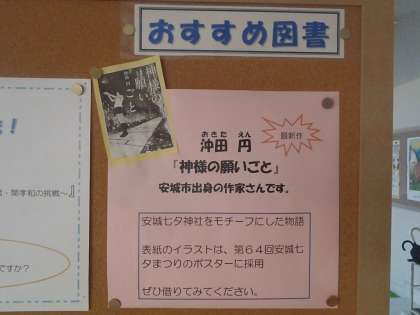 おすすめ図書
願い
ごと
おきた えん
沖田 円
最新作
『神様の願いごと』
安城市出身の作家さんです。
安城七夕神社をモチーフにした物語
表紙のイラストは、第６４回安城七
夕まつりのポスターに採用
ぜひ借りてみてください。
・関孝和の挑戦～』
ですか？